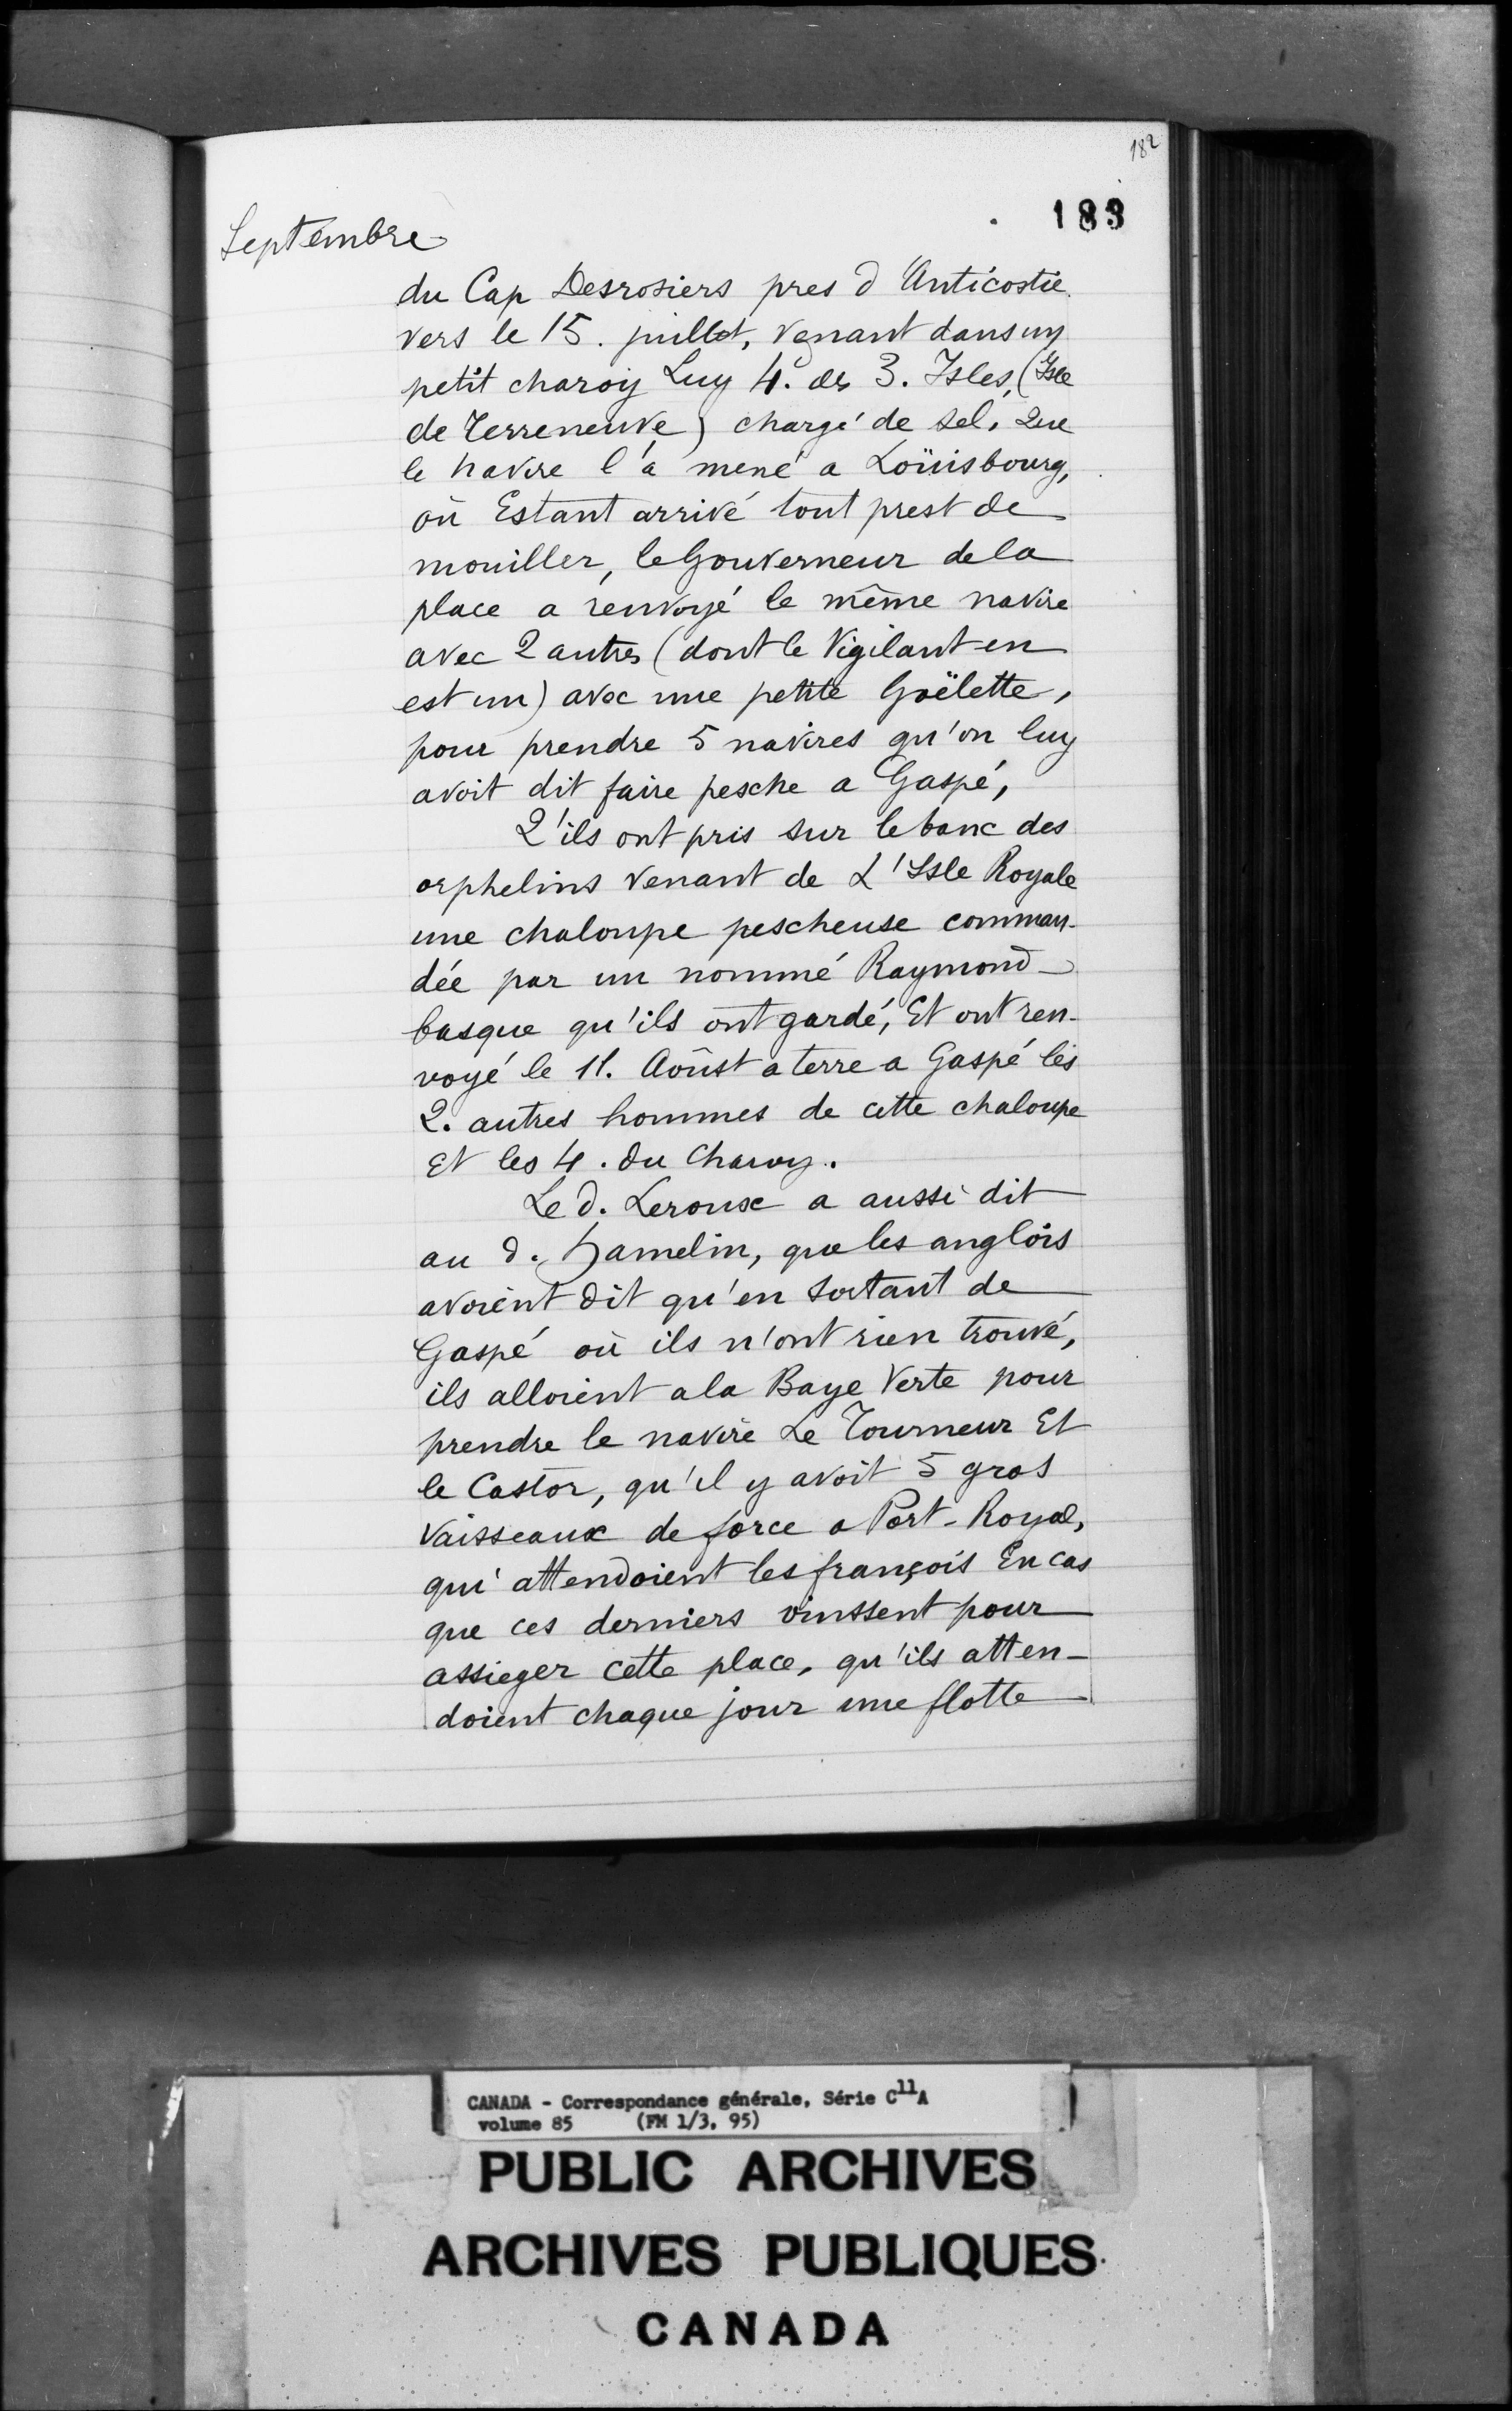 182
183
Septembre
du Cap Desrosiers pres d'Anticostie
vers le 15. juillet, venant dans un
petit charoy Luy 4. des 3. Isles, (Isle
de Terreneuve) chargé de sel, Que
le navire l'a mené a Loüisbourg,
où Estant arrivé tout prest de
mouiller, le Gouverneur de la
place a renvoyé le même navire
avec 2 autres (dont le Vigilant en
est un) avec une petite Goëlette,
pour prendre 5 navires qu'on luy
avoit dit faire pesche a Gaspé,
Q'ils ont pris sur le banc des
orphelins venant de L'Isle Royale
une chaloupe pescheuse comman-
dée par un nommé Raymond
basque qu'ils ont gardé, Et ont ren-
voyé le 11. Aoûst a terre a Gaspé les
2. autres hommes de cette chaloupe
Et les 4. du Charoy.
Le d. Leroux a aussi dit
au d. hamelin, que les anglois
avoient dit qu'en sortant de
Gaspé où ils n'ont rien trouvé,
ils alloient a la Baye Verte pour
prendre le navire Le Tourneur Et
le Castor, qu'il y avoit 5 gros
Vaisseaux de force a Port-Royal,
qui attendoient les françois En cas
que ces derniers vinssent pour
assieger cette place, qu'ils atten-
doient chaque jour une flotte
CANADA - Correspondance générale, Série C11A
volume 85 (FM 1/3, 95)
PUBLIC ARCHIVES
ARCHIVES PUBLIQUES
CANADA